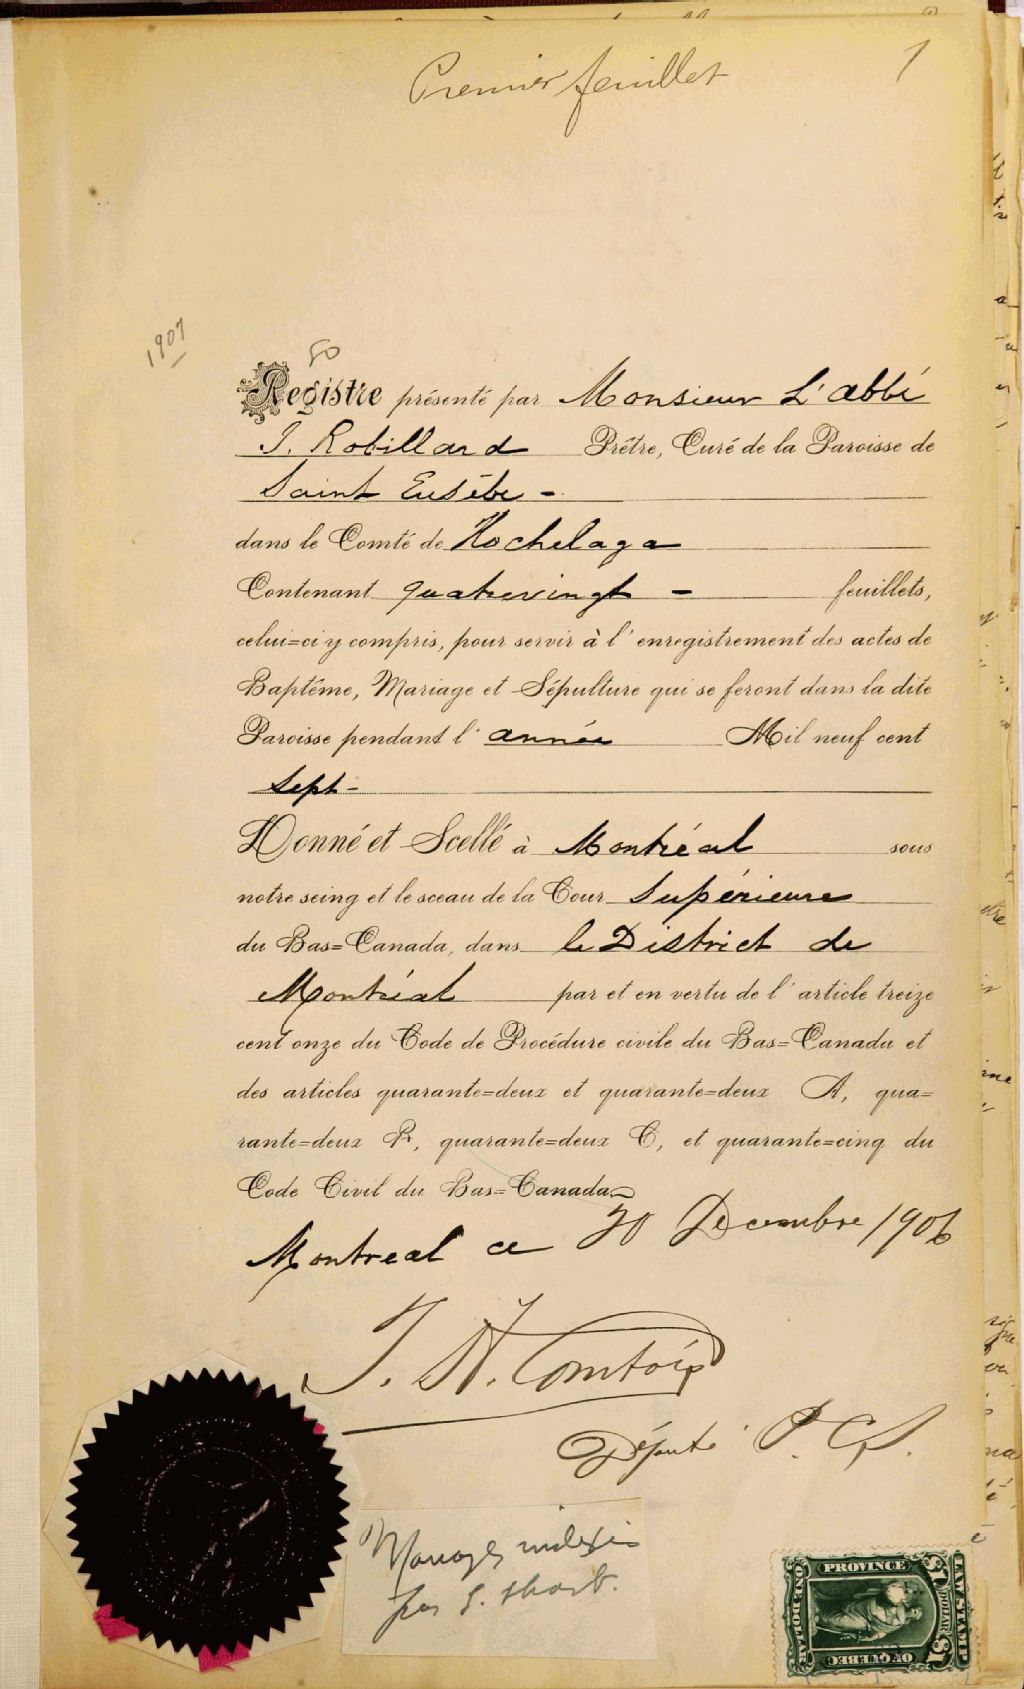 Premier feuillet
1
1907
80
Registre présenté par Monsieur L'abbé
J. Robillard Prêtre, Curé de la Paroisse de
Saint Eusèbe -
dans le Comté de Hochelaga
Contenant quatrevingt - feuillets,
celui=ci y compris, pour servir à l'enregistrement des actes de
Baptême, Mariage et Sépulture qui se feront dans la dite
Paroisse pendant l'année Mil neuf cent
sept -
Donné et Scellé à Montréal sous
notre seing et le sceau de la Cour Supérieure
du Bas=Canada, dans le District de
Montréal par et en vertu de l'article treize
cent onze du Code de Procédure civile du Bas=Canada et
des articles quarante=deux et quarante=deux A, qua=
rante=deux B, quarante=deux C, et quarante=cinq du
Code Civil du Bas=Canada
Montreal ce 30 Decembre 1906
J. A. Comtois
Député P. C. S.
Mariages indexés
par
PROVINCE
OF QUEBEC
LAW STAMP
ONE DOLLAR
$1 DOLLAR $1